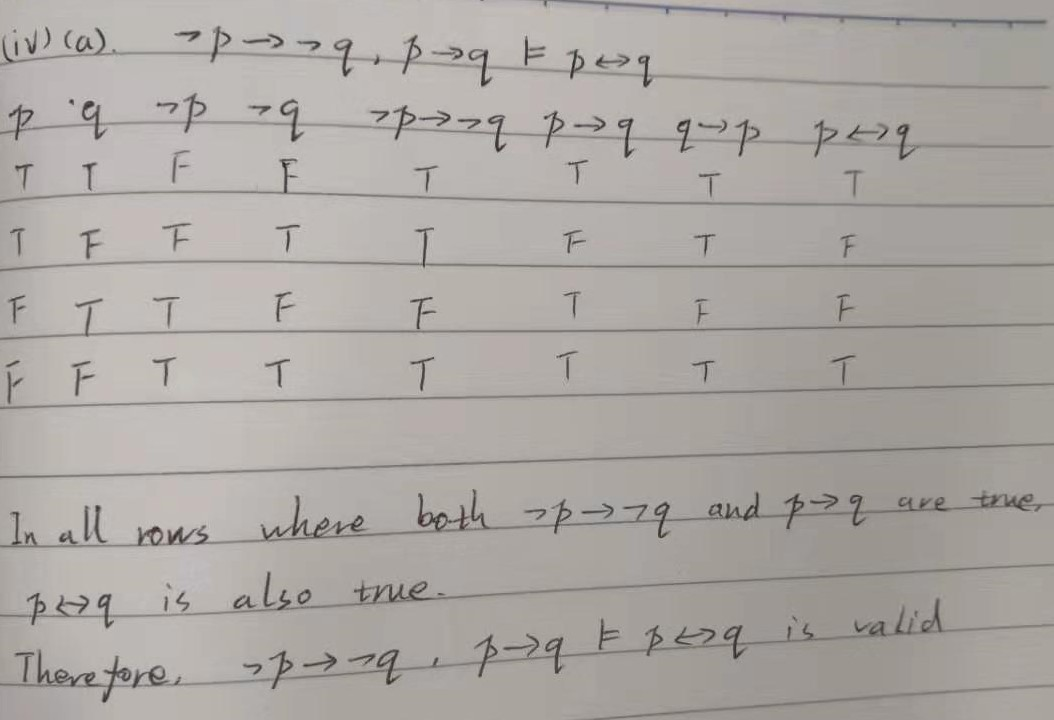 (iv) (a). ¬p→¬q, p→q ⊨ p↔q
p q ¬p ¬q ¬p→¬q p→q q→p p↔q
T T F F T T T T
T F F T T F T F
F T T F F T F F
F F T T T T T T
In all rows where both ¬p→¬q and p→q are true,
p↔q is also true.
Therefore, ¬p→¬q, p→q ⊨ p↔q is valid